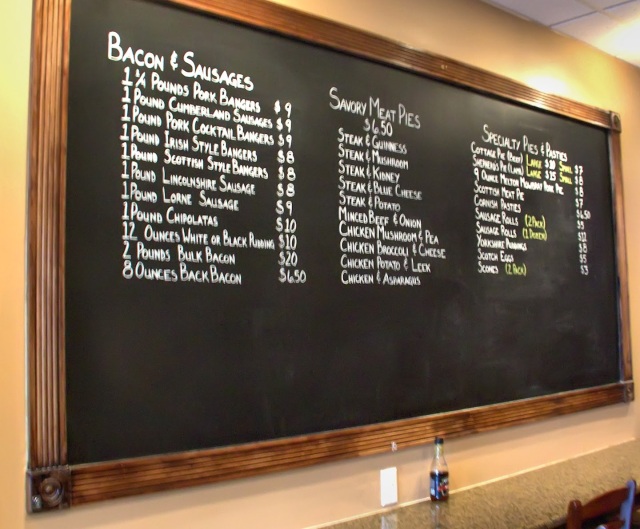 Bacon & Sausages
1 ¼ Pounds Pork Bangers $9
1 Pound Cumberland Sausages $9
1 Pound Pork Cocktail Bangers $9
1 Pound Irish Style Bangers $8
1 Pound Scottish Style Bangers $8
1 Pound Lincolnshire Sausage $8
1 Pound Lorne Sausage $9
1 Pound Chipolatas $10
12 Ounces White or Black Pudding $10
2 Pounds Bulk Bacon $20
8 Ounces Back Bacon $6.50
Savory Meat Pies
$6.50
Steak & Guinness
Steak & Mushroom
Steak & Kidney
Steak & Blue Cheese
Steak & Potato
Minced Beef & Onion
Chicken Mushroom & Pea
Chicken Broccoli & Cheese
Chicken Potato & Leek
Chicken & Asparagus
Specialty Pies & Pasties
Cottage Pie (Beef) Large Small $7
Shepherd's Pie (Lamb) Large Small $8
9 Ounce Melton Mowbray Pork Pie $8
Scottish Meat Pie $7
Cornish Pasties $6.50
Sausage Rolls (2 Pack) $5
Sausage Rolls (1 Dozen)
Yorkshire Puddings $8
Scotch Eggs $5
Scones (2 Pack) $3